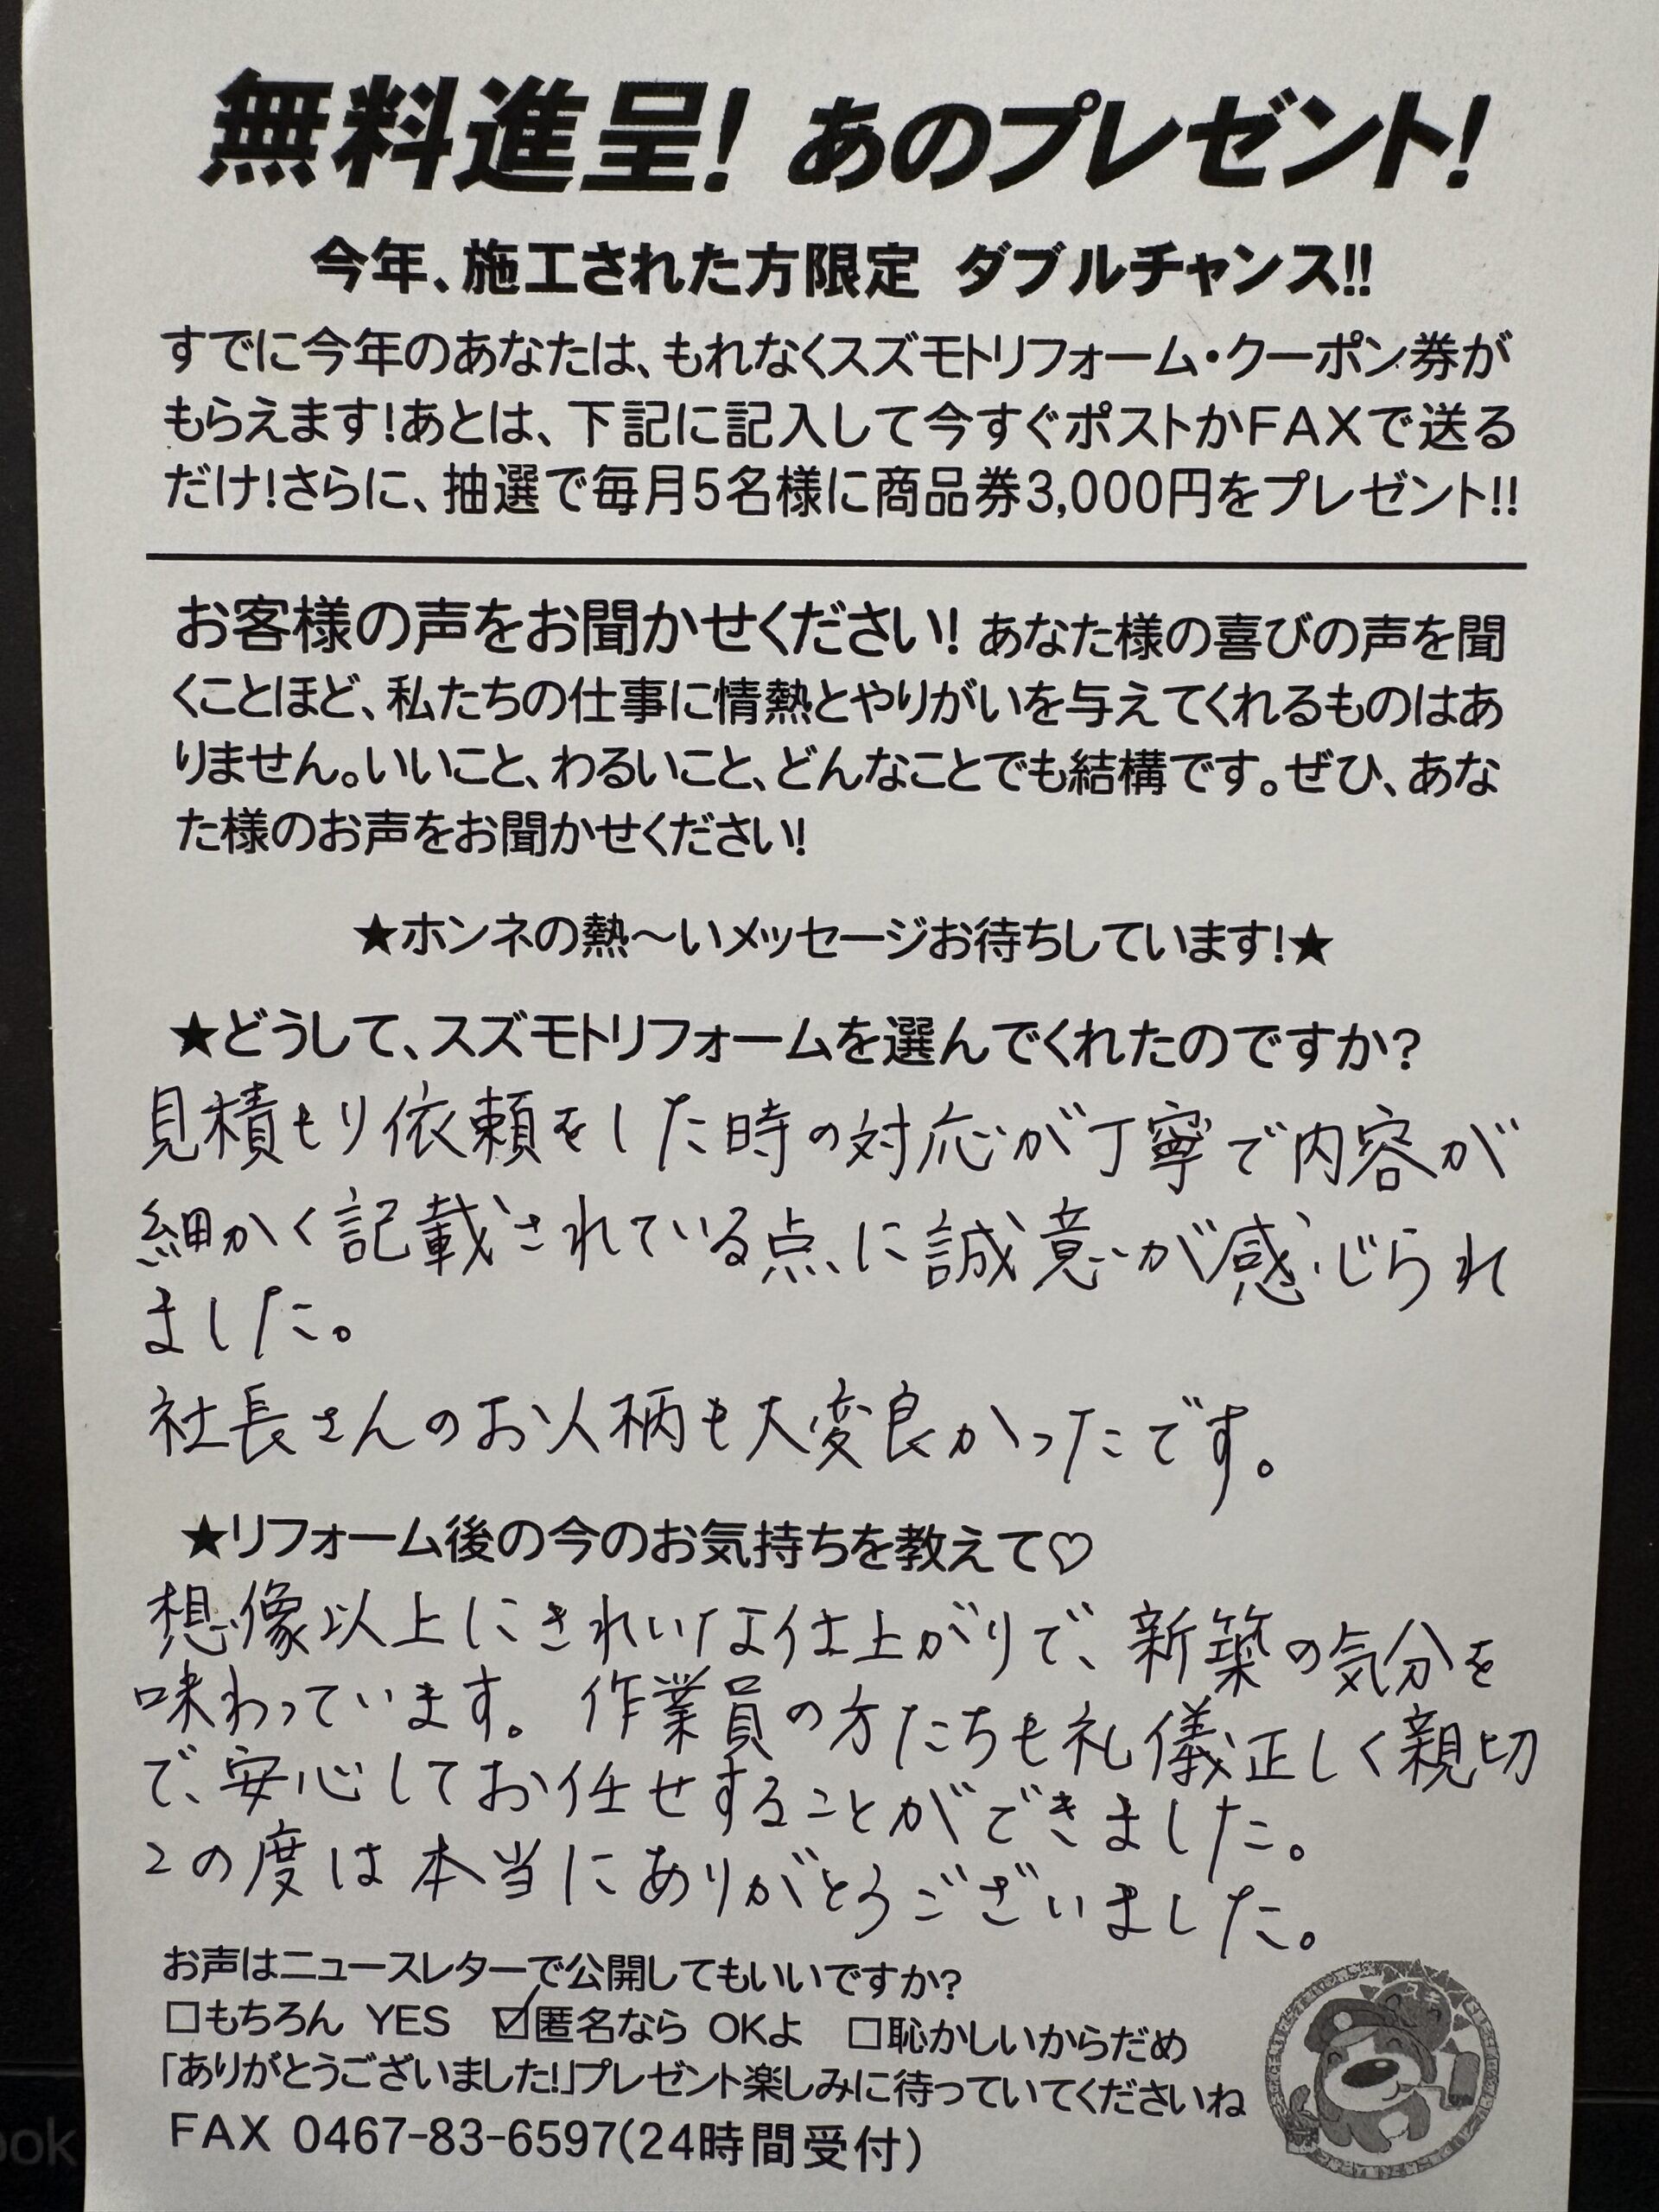 無料進呈!あのプレゼント!
今年、施工された方限定 ダブルチャンス!!
すでに今年のあなたは、もれなくスズモトリフォーム・クーポン券が
もらえます!あとは、下記に記入して今すぐポストかFAXで送る
だけ!さらに、抽選で毎月5名様に商品券3,000円をプレゼント!!
お客様の声をお聞かせください!あなた様の喜びの声を聞
くことほど、私たちの仕事に情熱とやりがいを与えてくれるものはあ
りません。いいこと、わるいこと、どんなことでも結構です。ぜひ、あな
た様のお声をお聞かせください!
★ホンネの熱〜いメッセージお待ちしています!★
★どうして、スズモトリフォームを選んでくれたのですか?
見積もり依頼をした時の対応が丁寧で内容が
細かく記載されている点に誠意が感じられ
ました。
社長さんのお人柄も大変良かったです。
★リフォーム後の今のお気持ちを教えて♡
想像以上にきれいな仕上がりで、新築の気分を
味わっています。作業員の方たちも礼儀正しく親切
で、安心してお任せすることができました。
この度は本当にありがとうございました。
お声はニュースレターで公開してもいいですか?
□もちろん YES ☑匿名なら OKよ □恥かしいからだめ
「ありがとうございました!」プレゼント楽しみに待っていてくださいね
FAX 0467-83-6597(24時間受付)